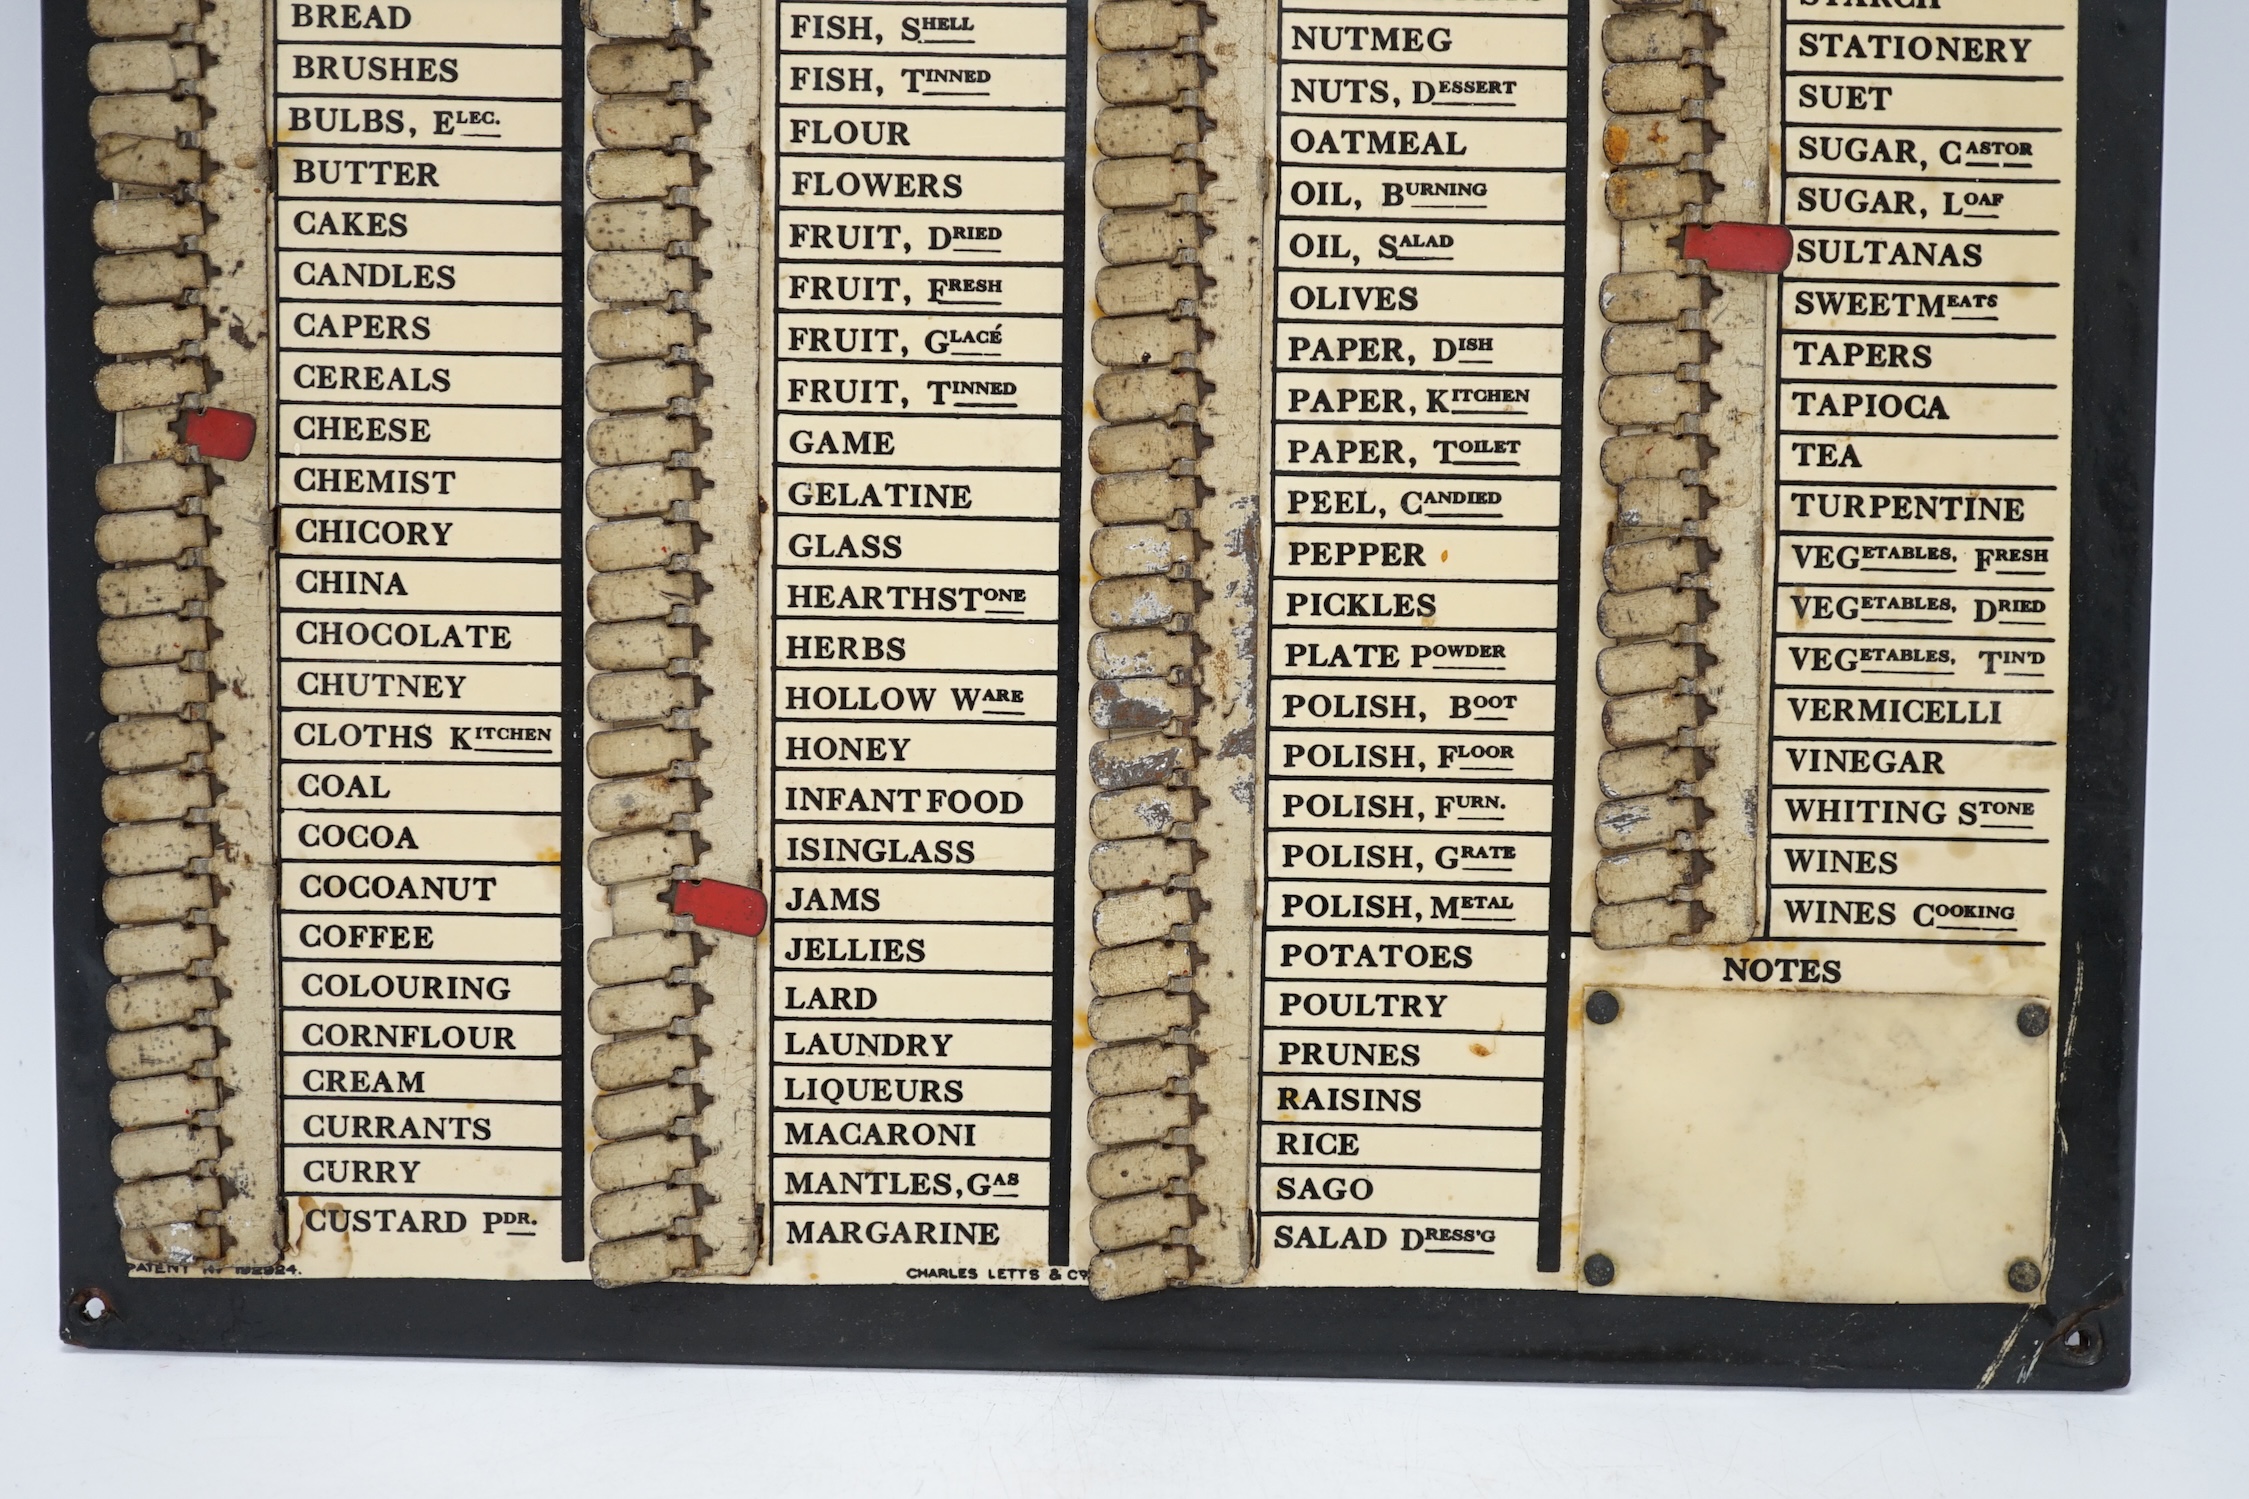 BREAD
BRUSHES
BULBS, ELEC.
BUTTER
CAKES
CANDLES
CAPERS
CEREALS
CHEESE
CHEMIST
CHICORY
CHINA
CHOCOLATE
CHUTNEY
CLOTHS KITCHEN
COAL
COCOA
COCOANUT
COFFEE
COLOURING
CORNFLOUR
CREAM
CURRANTS
CURRY
CUSTARD PDR.
FISH, SHELL
FISH, TINNED
FLOUR
FLOWERS
FRUIT, DRIED
FRUIT, FRESH
FRUIT, GLACÉ
FRUIT, TINNED
GAME
GELATINE
GLASS
HEARTHSTONE
HERBS
HOLLOW WARE
HONEY
INFANT FOOD
ISINGLASS
JAMS
JELLIES
LARD
LAUNDRY
LIQUEURS
MACARONI
MANTLES, GAS
MARGARINE
NUTMEG
NUTS, DESSERT
OATMEAL
OIL, BURNING
OIL, SALAD
OLIVES
PAPER, DISH
PAPER, KITCHEN
PAPER, TOILET
PEEL, CANDIED
PEPPER
PICKLES
PLATE POWDER
POLISH, BOOT
POLISH, FLOOR
POLISH, FURN.
POLISH, GRATE
POLISH, METAL
POTATOES
POULTRY
PRUNES
RAISINS
RICE
SAGO
SALAD DRESS'G
STARCH
STATIONERY
SUET
SUGAR, CASTOR
SUGAR, LOAF
SULTANAS
SWEETMEATS
TAPERS
TAPIOCA
TEA
TURPENTINE
VEGETABLES, FRESH
VEGETABLES, DRIED
VEGETABLES, TIN'D
VERMICELLI
VINEGAR
WHITING STONE
WINES
WINES COOKING
NOTES
PATENT
CHARLES LETTS & CO